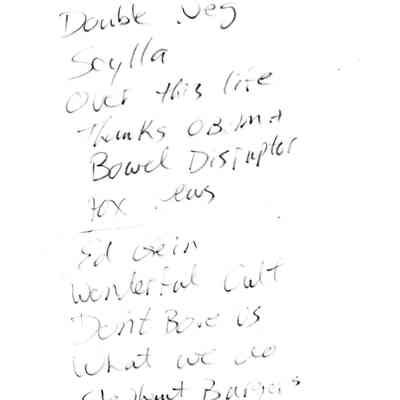 Double Veg
Scylla
Over this life
Thanks OBAMA
Bowel Disruptor
Ed Gein
Wonderful Cult
Don't Bore us
What we do
Elephant